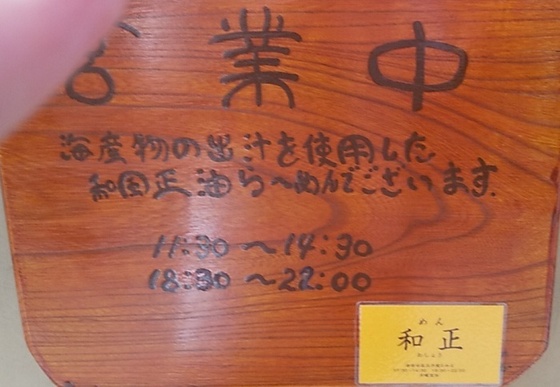 営業中
海産物の出汁を使用した
和国正油らーめんでございます
11:30〜14:30
18:30〜22:00
めん
和正